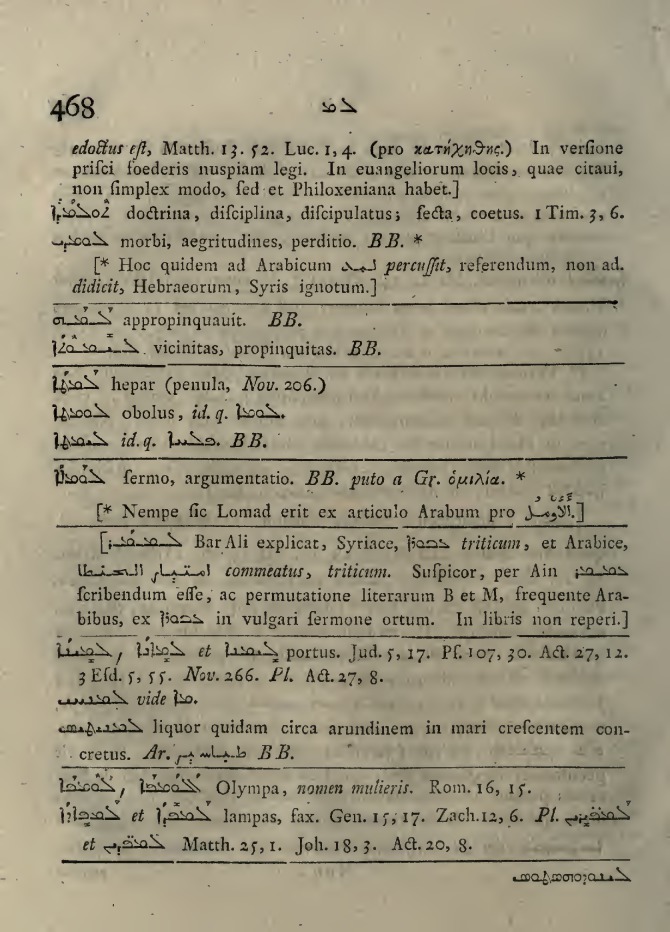 468
ܠܡܕ
edoctus eſt, Matth. 13. 52. Luc. 1, 4. (pro κατήχηθης.) In verſione
priſci foederis nuspiam legi. In euangeliorum locis, quae citaui,
non ſimplex modo, ſed et Philoxeniana habet.]
ܬܘܠܡܕܐ doctrina, diſciplina, diſcipulatus; ſecta, coetus. 1 Tim. 3, 6.
morbi, aegritudines, perditio. BB. *
[* Hoc quidem ad Arabicum لمد percuſſit, referendum, non ad.
didicit, Hebraeorum, Syris ignotum.]
appropinquauit. BB.
vicinitas, propinquitas. BB.
hepar (penula, Nov. 206.)
obolus, id. q.
id. q. BB.
ſermo, argumentatio. BB. puto a Gr. ὁμιλία. *
[* Nempe ſic Lomad erit ex articulo Arabum pro
Bar Ali explicat, Syriace, triticum, et Arabice,
امتيار الحنطة commeatus, triticum. Suſpicor, per Ain
ſcribendum eſſe, ac permutatione literarum B et M, frequente Ara-
bibus, ex in vulgari ſermone ortum. In libris non reperi.]
et portus. Jud. 5, 17. Pſ. 107, 30. Act. 27, 12.
3 Eſd. 5, 55. Nov. 266. Pl. Act. 27, 8.
vide
liquor quidam circa arundinem in mari creſcentem con-
cretus. Ar. BB.
Olympa, nomen mulieris. Rom. 16, 15.
ܠܡܦܐܕܐ et ܠܡܦܕܐ lampas, fax. Gen. 15, 17. Zach. 12, 6. Pl.
et Matth. 25, 1. Joh. 18, 3. Act. 20, 8.